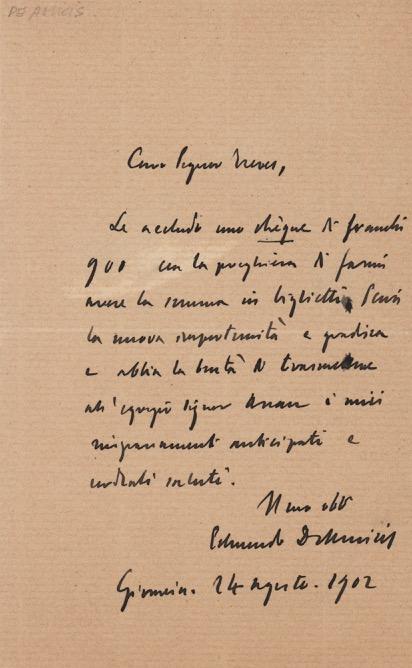 DE AMICIS
Caro Signor Treves,
Le accludo uno chèque di franchi
900 con la preghiera di farmi
avere la somma in biglietti. Scusi
la nuova importunità e gradisca
e abbia la bontà di trasmettere
all'egregio signor i miei
ringraziamenti anticipati e
cordiali saluti.
Suo obb
Edmondo DeAmicis
24 agosto. 1902